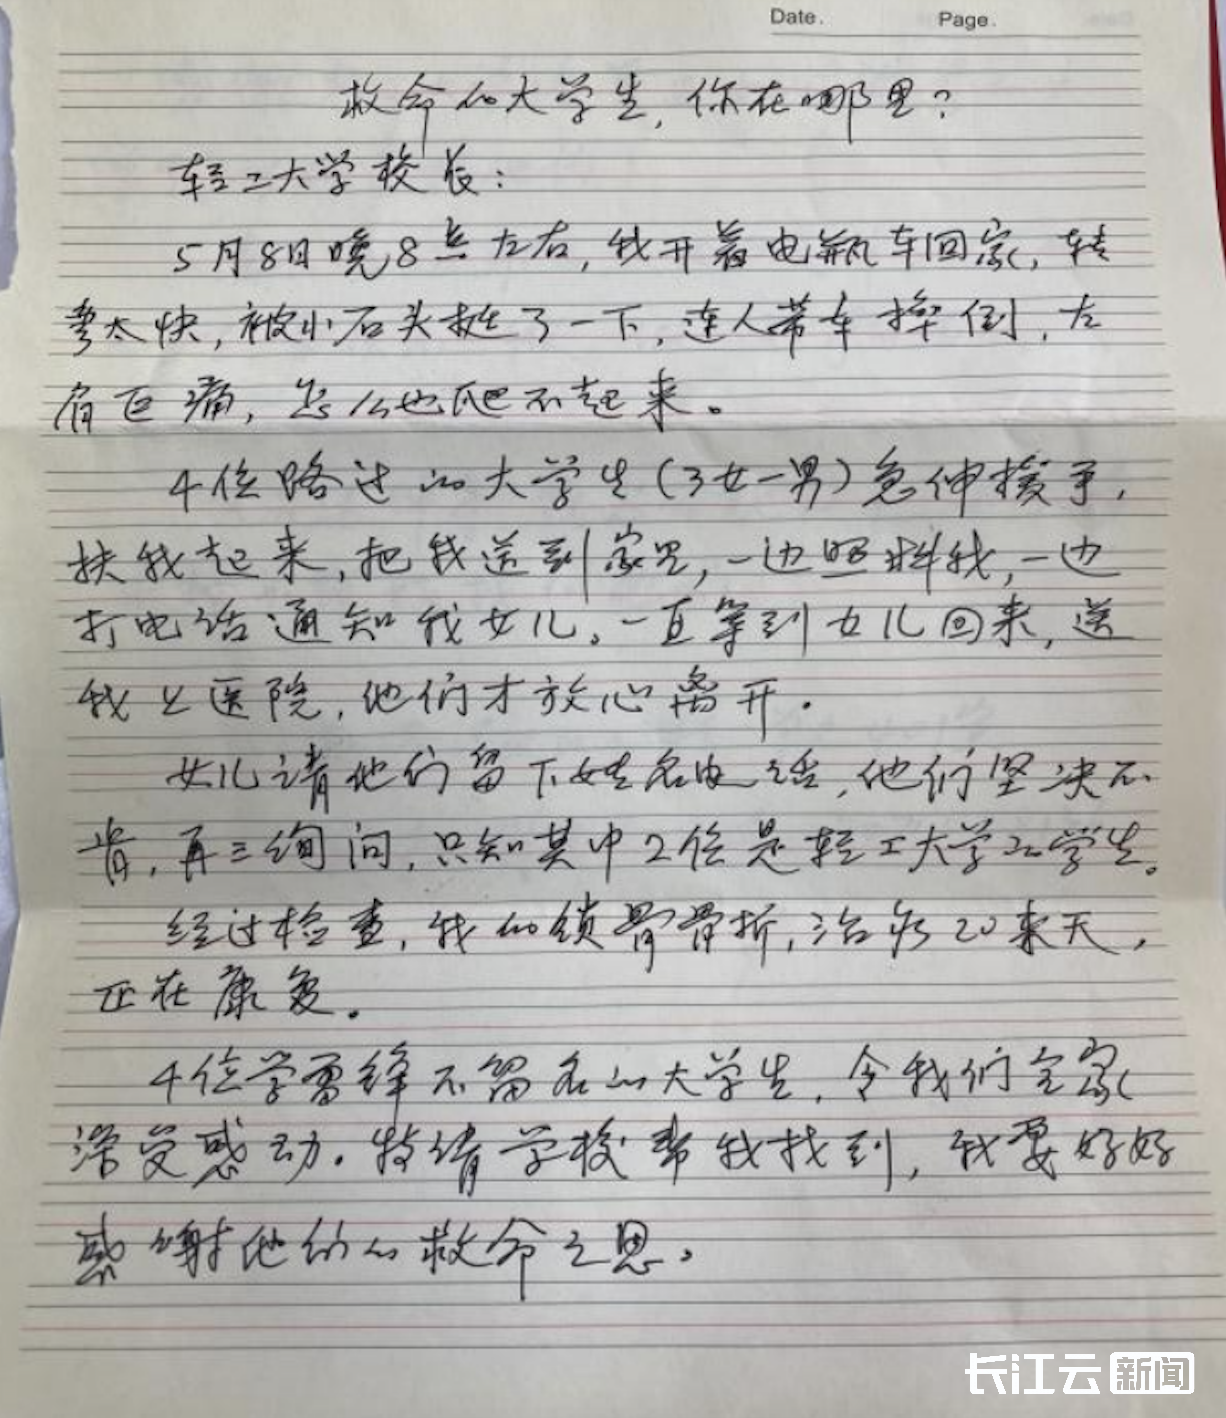 Date.
Page.
救命的大学生，你在哪里？
轻工大学校长：
5月8日晚8点左右，我开着电瓶车回家，转
弯太快，被小石头挺了一下，连人带车摔倒，左
肩巨痛，怎么也爬不起来。
4位路过的大学生（3女一男）急伸援手，
扶我起来，把我送到家里，一边照料我，一边
打电话通知我女儿。一直等到女儿回来，送
我上医院，他们才放心离开。
女儿请他们留下姓名电话，他们坚决不
肯，再三询问，只知其中2位是轻工大学的学生。
经过检查，我的锁骨骨折，治疗20来天，
正在康复。
4位学雷锋不留名的大学生，令我们全家
深受感动。特请学校帮我找到，我要好好
感谢他们的救命之恩。
长江云新闻